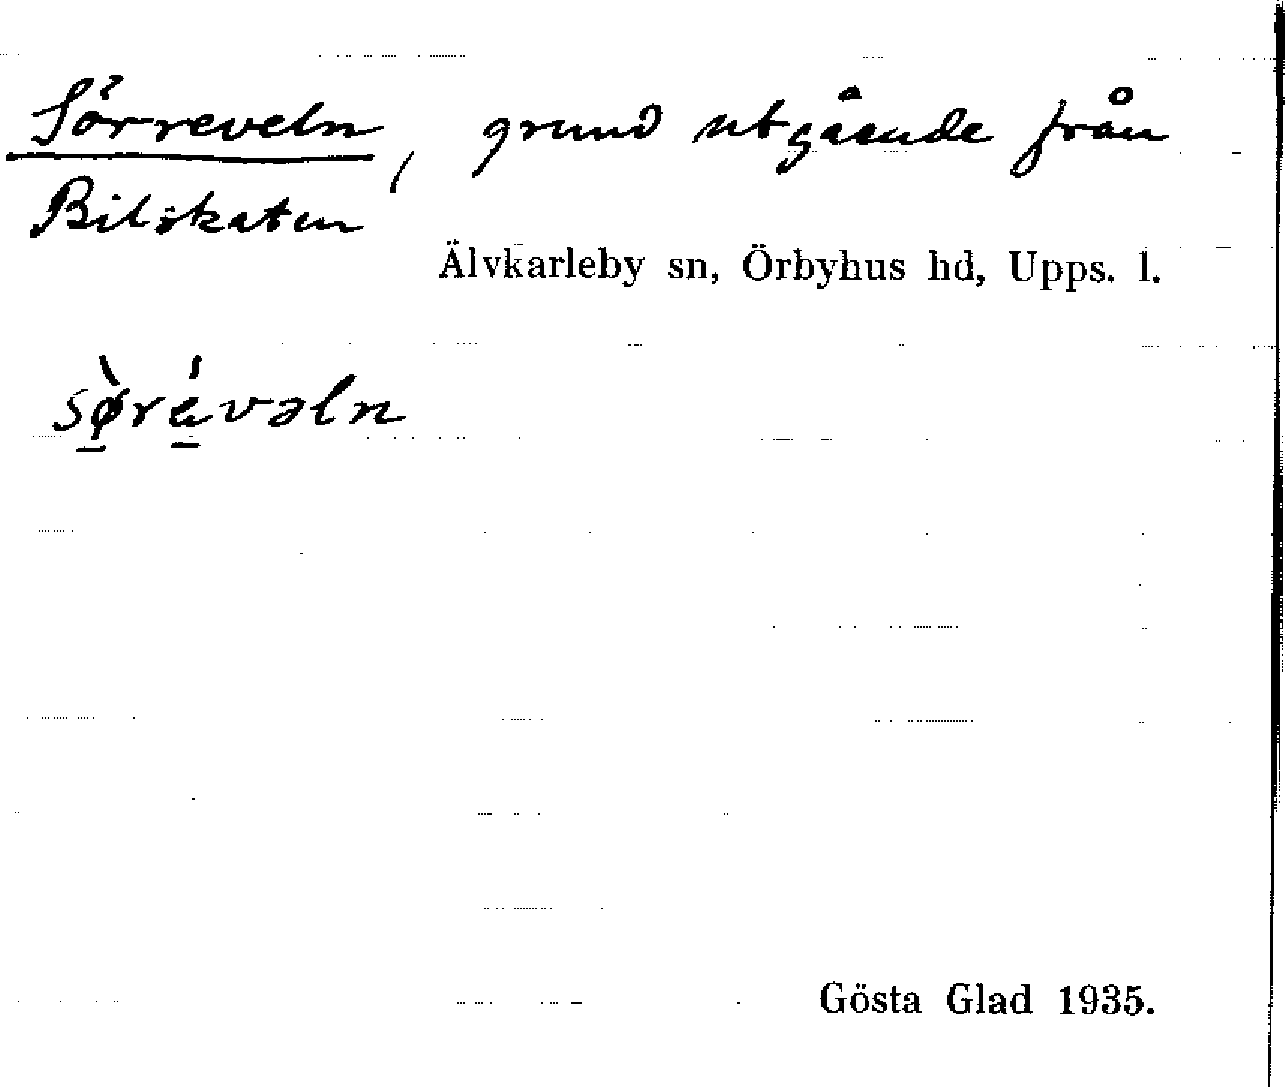 Sörreveln, grund utgående från
Bilskaten
Älvkarleby sn, Örbyhus hd, Upps. l.
sø̱̀ré̱vəln
Gösta Glad 1935.